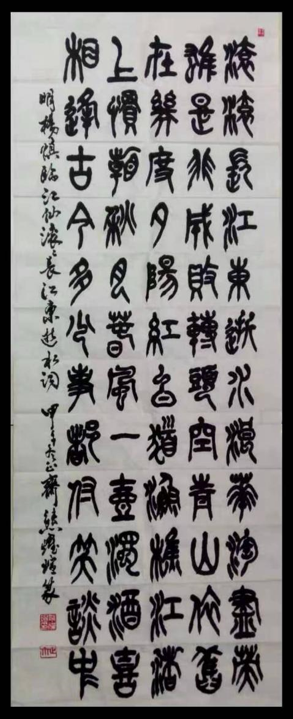 滾滾長江東逝水浪花淘盡英
雄是非成敗轉頭空青山依舊
在幾度夕陽紅白髮漁樵江渚
上慣看秋月春風一壺濁酒喜
相逢古今多少事都付笑談中
明楊慎臨江仙滾滾長江東逝水詞 甲午 齋 篆